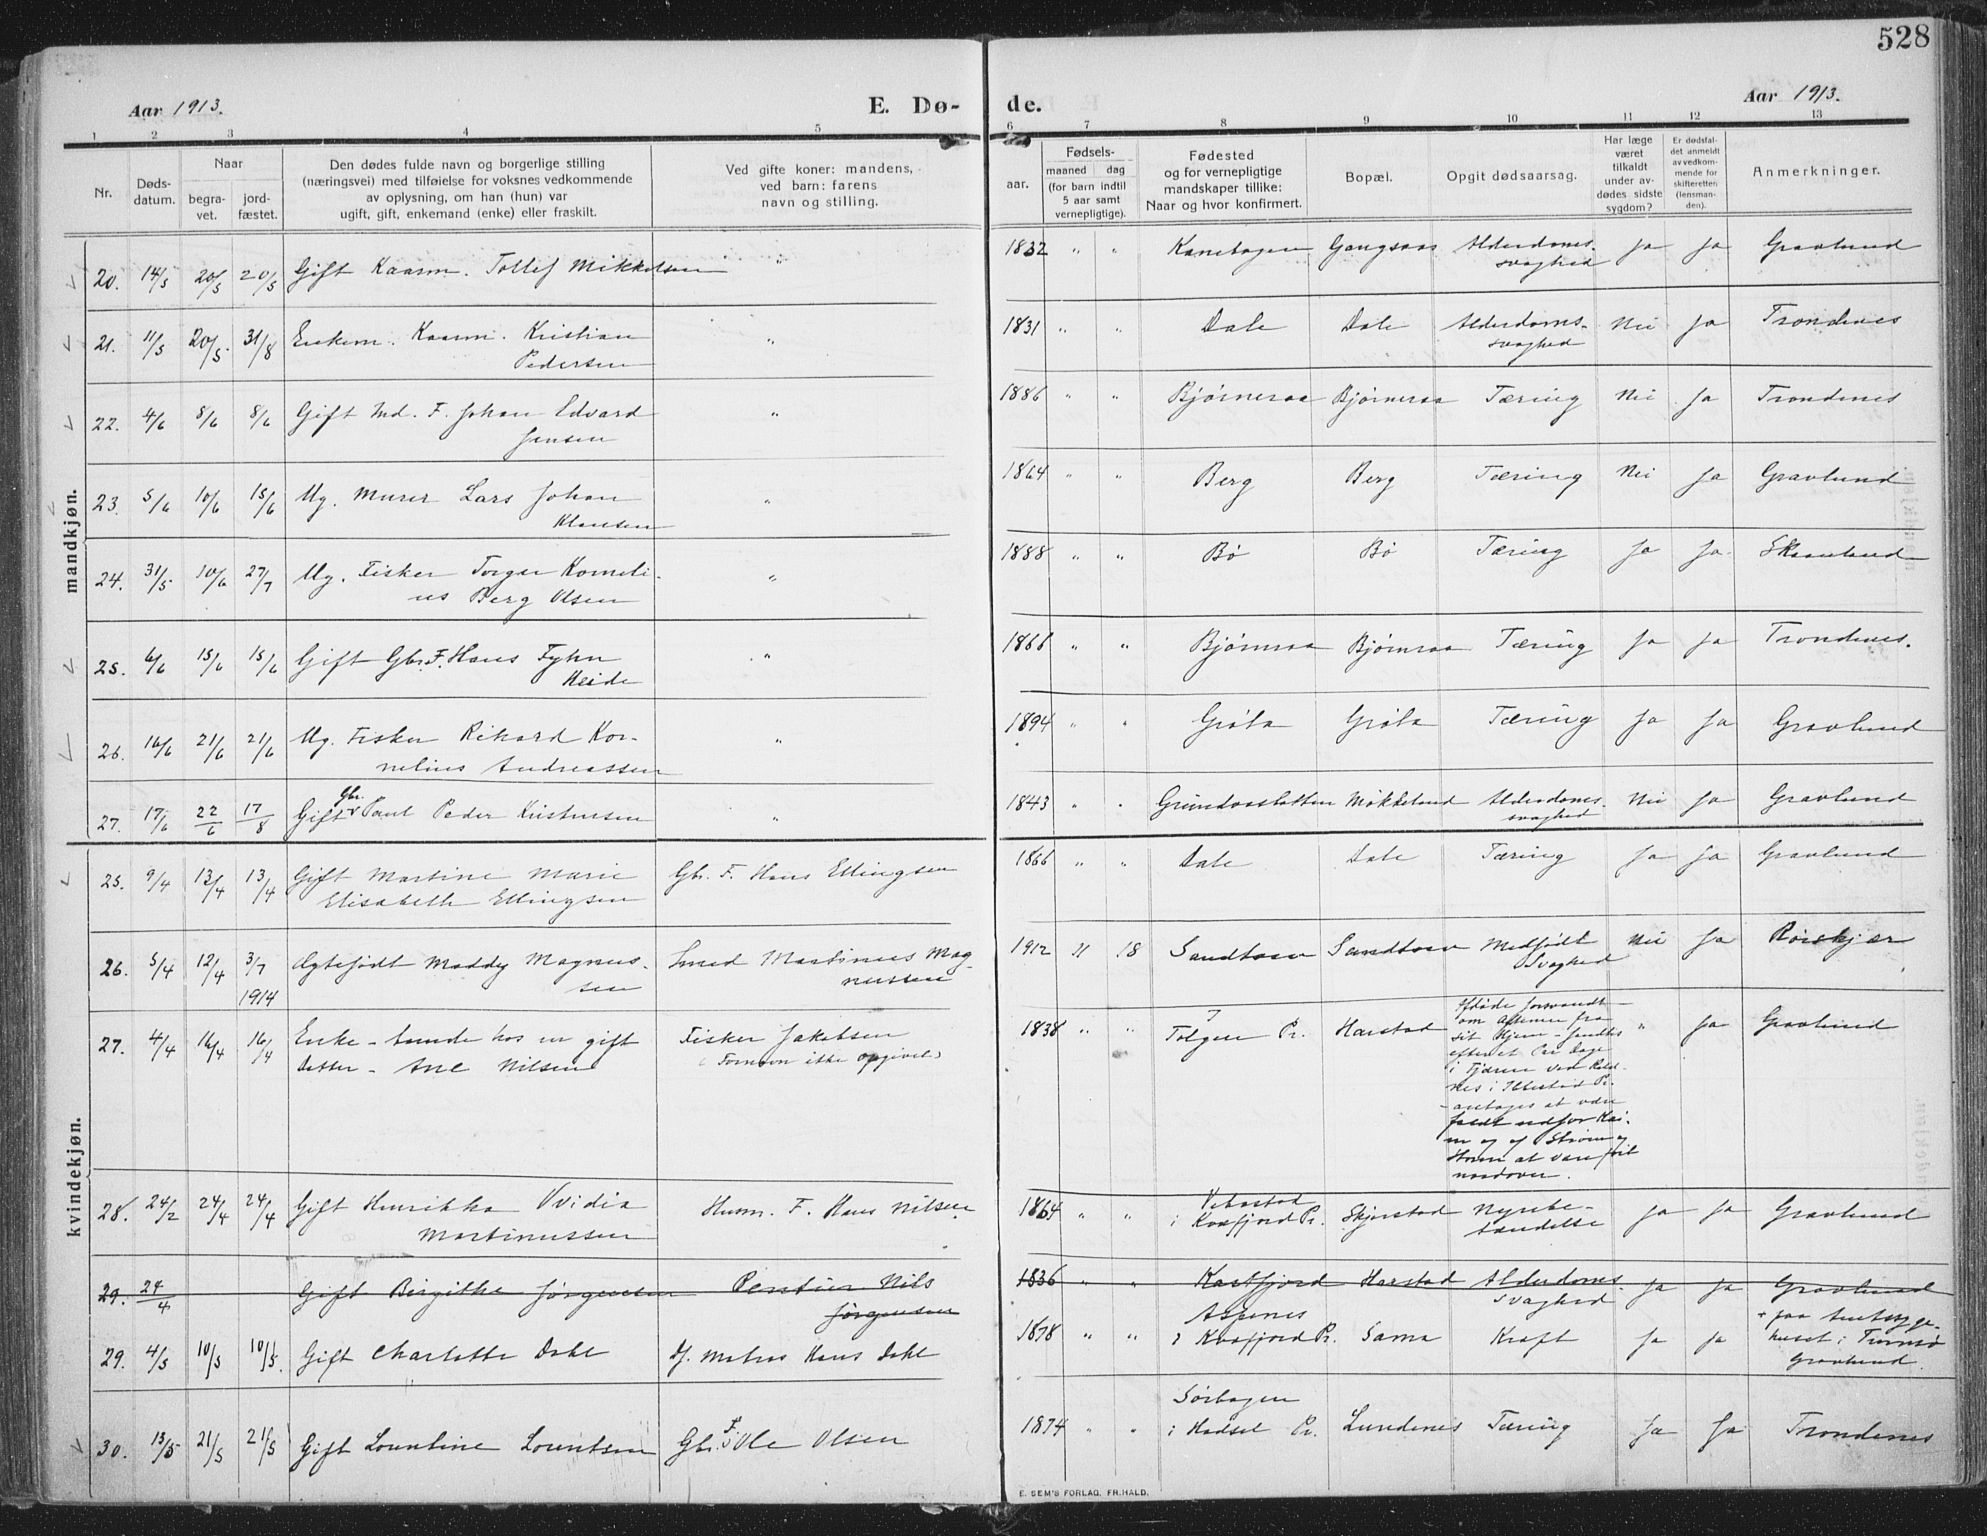 528
Aar 1913. E. Dø- de. Aar 1913.
1 2 3 4 5 6 7 8 9 10 11 12 13
Nr.
Døds-
datum.
Naar
begra-
vet.
jord-
fæstet.
Den dødes fulde navn og borgerlige stilling
(næringsvei) med tilføielse for voksnes vedkommende
av oplysning, om han (hun) var
ugift, gift, enkemand (enke) eller fraskilt.
Ved gifte koner: mandens,
ved barn: farens
navn og stilling.
aar.
Fødsels-
maaned dag
(for barn indtil
5 aar samt
vernepligtige).
Fødested
og for vernepligtige
mandskaper tillike:
Naar og hvor konfirmert.
Bopæl.
Opgit dødsaarsag.
Har læge
været
tilkaldt
under av-
dødes sidste
sygdom?
Er dødsfal-
det anmeldt
av vedkom-
mende for
skifteretten
(lensman-
den).
Anmerkninger.
mandkjøn.
20. 14/5 20/5 20/5 Gift Kaarm. Tollef Mikkelsen " 1832 " " Kanebogen Gangsaas Alderdoms-
svaghed Ja Ja Gravlund
21. 11/5 20/5 31/8 Enkem. Kaarm. Kristian
Pedersen " 1831 " " Dale Dale Alderdoms-
svaghed Nei Ja Trondenes
22. 4/6 8/6 8/6 Gift Ind. F. Johan Edvard
Jensen " 1886 " " Bjørneraa Bjørneraa Tæring Nei Ja Trondenes
23. 5/6 10/6 15/6 Ug. Murer Lars Johan
Klausen " 1864 " " Berg Berg Tæring Nei Ja Gravlund
24. 31/5 10/6 27/7 Ug. Fisker Torger Korneli-
us Berg Olsen " 1888 " " Bø Bø Tæring Ja Ja Skaanland
25. 6/6 15/6 15/6 Gift Gbr. F. Hans Tyhn
Heide " 1866 " " Bjørnraa Bjørnraa Tæring Ja Ja Trondenes.
26. 16/6 21/6 21/6 Ug. Fisker Rikard Kor-
nelius Andreassen " 1894 " " Grøla Grøla Tæring Ja Ja Gravlund
27. 17/6 22/6 17/8 Gift Gbr. Paul Peder Kristensen " 1843 " " Grundvasslatten Møkkeland Alderdoms-
svaghed Nei Ja Gravlund
kvindekjøn.
25. 9/4 13/4 13/4 Gift Martine Marie
Elisabeth Ellingsen Gbr. F. Hans Ellingsen 1866 " " Dale Dale Tæring Ja Ja Gravlund
26. 5/4 12/4 3/7
1914 Ægtefødt Maddy Magnus-
sen Smed Martinus Mag-
nussen 1912 11 18 Sandtorv Sandtorv Medfødt
Svaghed Nei Ja Røiskjær
27. 4/4 16/4 16/4 Enke - boende hos en gift
datter - Ane Nilsen Fisker Jakobsen
(Fornavn ikke opgivet) 1838 " " Tolgen Pr. Harstad
Afdøde forsvandt
om aftenen fra
sit Hjem - fandtes
efter et Par Dage
i Fjæren ved Rold-
nes i Ibbestad Pr.
- antages at være
faldt udfor Kai-
en og af Strøm og
Storm at være ført
nordover.
" Ja Gravlund
28. 24/2 24/4 24/4 Gift Henrikka Ovidia
Martinussen Husm. F. Hans Nilsen 1864 " " Vebostad
i Kvæfjord Pr. Skjerstad Nyrebe-
tændelse Ja Ja Gravlund
29. 24/4 Gift Birgithe Jørgensen Pensien Nils
Jørgensen 1836 " " Kvæfjord Harstad Alderdoms-
svaghed Ja Ja Gravlund
29. 4/5 10/5 10/5. Gift Charlotte Dahl Dj. Matros Hans Dahl 1878 " " Aspenes
i Kvæfjord Pr. Sama Kræft Ja Ja + paa Sentsyge-
huset i Tromsø
Gravlund.
30. 13/5 21/5 21/5 Gift Lorentine Lorentsen Gbr. F. Ole Olsen 1874 " " Sørbogen
i Hadsel Pr. Lundenes Tæring Ja Ja Trondenes
E. SEM'S FORLAG, FR.HALD.